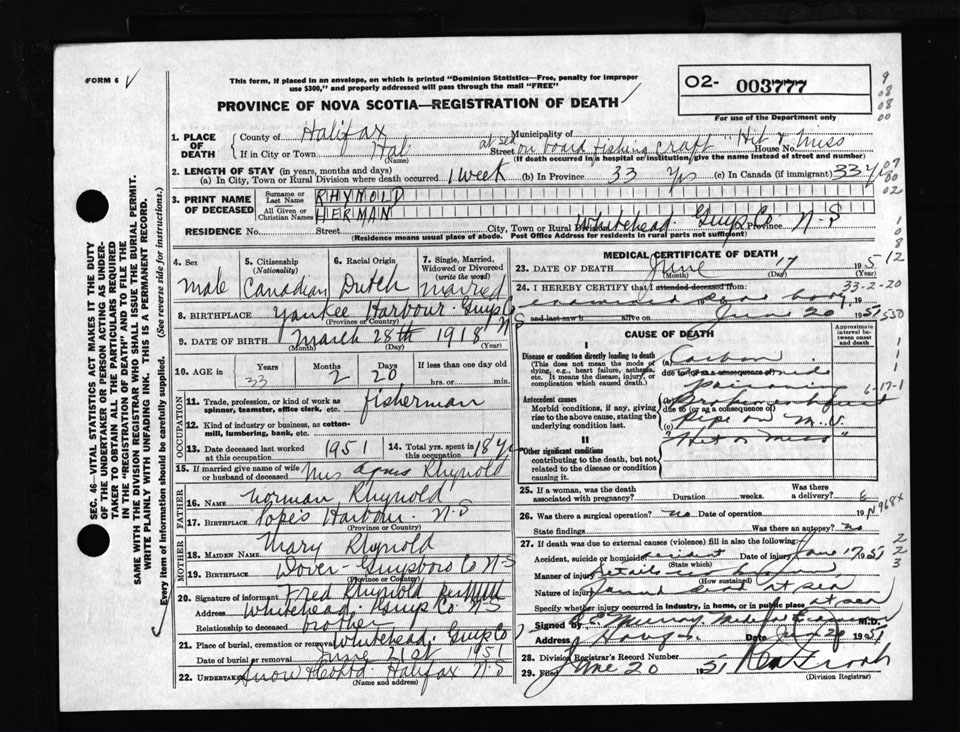 FORM 6 V
This form, if placed in an envelope, on which is printed "Dominion Statistics—Free, penalty for improper
use $300," and properly addressed will pass through the mail "FREE"
PROVINCE OF NOVA SCOTIA—REGISTRATION OF DEATH
02- 003777
For use of the Department only
1. PLACE OF DEATH
County of Halifax Municipality of
If in City or Town Hal (Name) Street at sea on board fishing craft "Hit & Miss" House No.
(If death occurred in a hospital or institution, give the name instead of street and number)
2. LENGTH OF STAY (in years, months and days)
(a) In City, Town or Rural Division where death occurred 1 week (b) In Province 33 yrs (c) In Canada (if immigrant) 33 yrs
3. PRINT NAME OF DECEASED
Surname or Last Name RHYNOLD
All Given or Christian Names HERMAN
RESIDENCE No. Street City, Town or Rural Division Whitehead Guys Co Province N-S
(Residence means usual place of abode. Post Office Address for residents in rural parts not sufficient)
4. Sex Male
5. Citizenship (Nationality) Canadian
6. Racial Origin Dutch
7. Single, Married, Widowed or Divorced (write the word) Married
8. BIRTHPLACE Yankee Harbour Guys Co N S
(Province or Country)
9. DATE OF BIRTH March 28th 1918
(Month) (Day) (Year)
10. AGE in Years 33 Months 2 Days 20 If less than one day old
hrs. or min.
OCCUPATION
11. Trade, profession, or kind of work as
spinner, teamster, office clerk, etc. fisherman
12. Kind of industry or business, as cotton-
mill, lumbering, bank, etc.
13. Date deceased last worked
at this occupation 1951
14. Total yrs. spent in
this occupation 18 yrs
15. If married give name of wife
or husband of deceased Mrs Agnes Rhynold
FATHER
16. NAME Norman Rhynold
17. BIRTHPLACE Popes Harbour N-S
(Province or Country)
MOTHER
18. MAIDEN NAME Mary Rhynold
19. BIRTHPLACE Dover Guysboro Co N-S
(Province or Country)
20. Signature of informant Fred Rhynold
Address Whitehead Guys Co N-S
Relationship to deceased brother
21. Place of burial, cremation or removal Whitehead Guys Co
Date of burial or removal June 21st 1951
22. UNDERTAKER Snow & Co Ltd Halifax N-S
(Name and address)
MEDICAL CERTIFICATE OF DEATH
23. DATE OF DEATH June 17 1951
(Month) (Day) (Year)
24. I HEREBY CERTIFY that I attended deceased from
examined dead body 19
and last saw h alive on June 20 1951
33-2-20
CAUSE OF DEATH
Approximate interval between onset and death
I
Disease or condition directly leading to death
(This does not mean the mode of
dying, e.g., heart failure, asthenia,
etc. It means the disease, injury, or
complication which caused death.)
(a) Carbon
due to (or as a consequence of) monoxide
poisoning
Antecedent causes
Morbid conditions, if any, giving
rise to the above cause, stating the
underlying condition last.
(b) Broken exhaust
due to (or as a consequence of)
(c) pipe on M. V.
"Hit or Miss"
6-17-1
II
Other significant conditions
contributing to the death, but not
related to the disease or condition
causing it.
25. If a woman, was the death
associated with pregnancy? Duration weeks. Was there
a delivery?
26. Was there a surgical operation? no Date of operation 19
State findings Was there an autopsy? no
27. If death was due to external causes (violence) fill in also the following:
Accident, suicide or homicide accident Date of injury June 17 1951
(State which)
Manner of injury Details unknown
(How sustained)
Nature of injury found dead at sea
Specify whether injury occurred in industry, in home, or in public place at sea
Signed by Murray Medical Examiner M.D.
Address Date June 20 1951
28. Division Registrar's Record Number
29. Filed June 20 1951
(Division Registrar)
SEC. 46—VITAL STATISTICS ACT MAKES IT THE DUTY
OF THE UNDERTAKER OR PERSON ACTING AS UNDER-
TAKER TO OBTAIN ALL THE PARTICULARS REQUIRED
IN THE "REGISTRATION OF DEATH" AND TO FILE THE
SAME WITH THE DIVISION REGISTRAR WHO SHALL ISSUE THE BURIAL PERMIT.
WRITE PLAINLY WITH UNFADING INK. THIS IS A PERMANENT RECORD.
Every item of information should be carefully supplied. (See reverse side for instructions.)